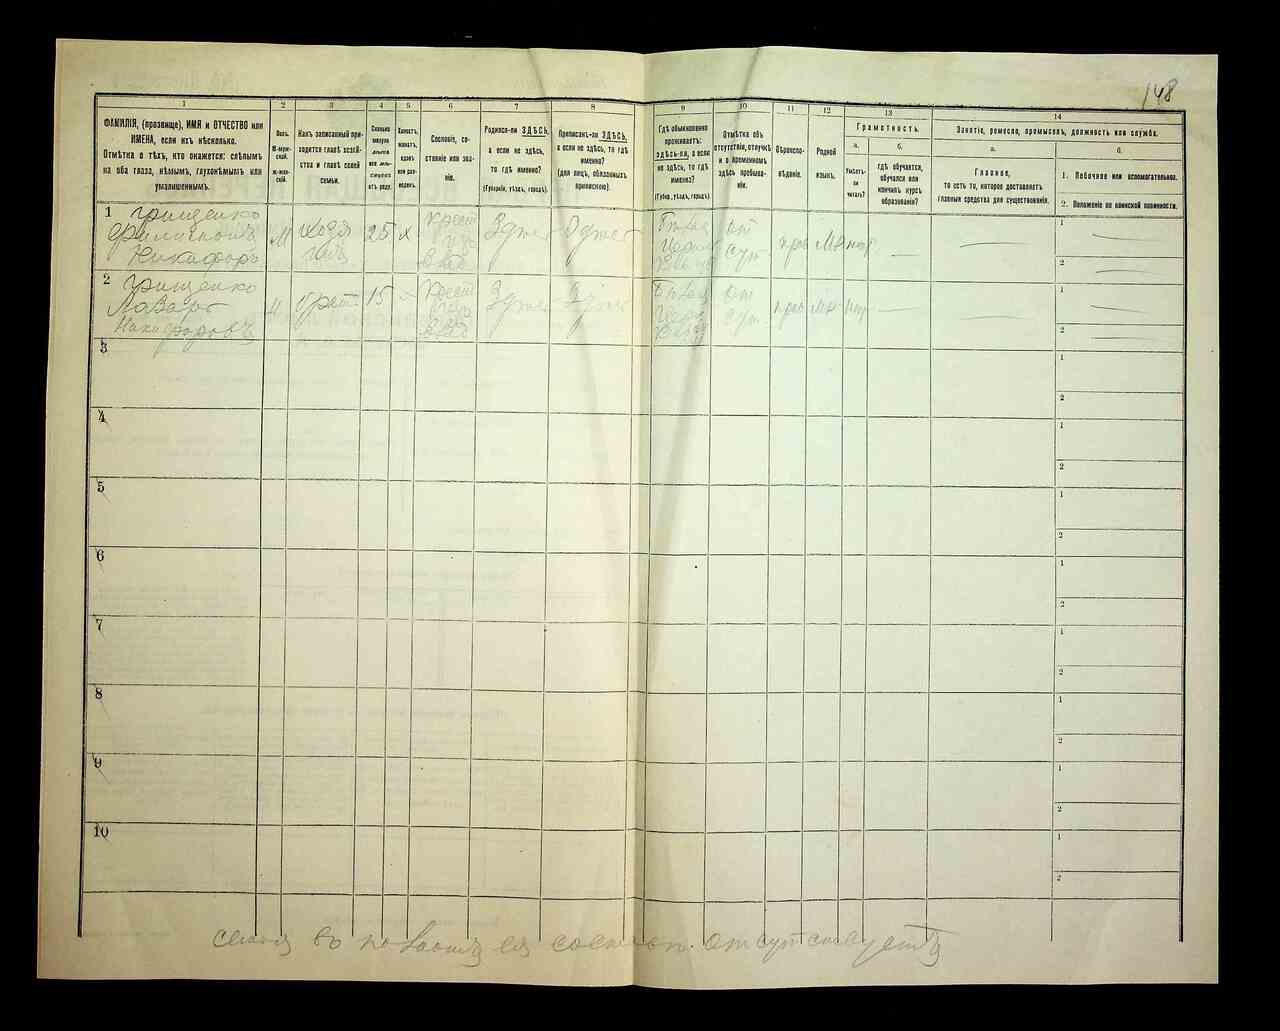 148
1 2 3 4 5 6 7 8 9 10 11 12 13 14
ФАМИЛІЯ, (прозвище), ИМЯ и ОТЧЕСТВО или
ИМЕНА, если ихъ нѣсколько.
Отмѣтка о тѣхъ, кто окажется: слѣпымъ
на оба глаза, нѣмымъ, глухонѣмымъ или
умалишеннымъ.
Полъ.
М-муж-
ской.
Ж-жен-
скій.
Какъ записанный при-
ходится главѣ хозяй-
ства и главѣ своей
семьи.
Сколько
минуло
лѣтъ
или мѣ-
сяцевъ
отъ роду.
Холостъ,
женатъ,
вдовъ
или раз-
веденъ.
Сословіе, со-
стояніе или зва-
ніе.
Родился-ли ЗДѢСЬ,
а если не здѣсь,
то гдѣ именно?
(Губернія, уѣздъ, городъ).
Приписанъ-ли ЗДѢСЬ,
а если не здѣсь, то гдѣ
именно?
(для лицъ, обязанныхъ
припискою).
Гдѣ обыкновенно
проживаетъ:
ЗДѢСЬ-ЛИ, а если
не здѣсь, то гдѣ
именно?
(Губер., уѣздъ, городъ).
Отмѣтка объ
отсутствіи, отлучкѣ
и о временномъ
здѣсь пребыва-
ніи.
Вѣроиспо-
вѣданіе.
Родной
языкъ.
Грамотность.
а.
Умѣетъ-
ли
читать?
б.
гдѣ обучается,
обучался или
кончилъ курсъ
образованія?
Занятіе, ремесло, промыселъ, должность или служба.
а.
Главное,
то есть то, которое доставляетъ
главныя средства для существованія.
б.
1. Побочное или вспомогательное.
2. Положеніе по воинской повинности.
1 Грищенко
Филимонъ
Никифоръ
М
Хозя
инъ
25 х
Крест
Здѣсь
Здѣсь
от
сут
прав
Мал
нѣт
1
2
2 Грищенко
Лазарь
Никифоровъ
М
брат
15 х
Крест
Здѣсь
Здѣсь
от
сут
прав
Мал
нѣт
1
2
3
1
2
4
1
2
5
1
2
6
1
2
7
1
2
8
1
2
9
1
2
10
1
2
семья въ полномъ ея составѣ отсутствуетъ